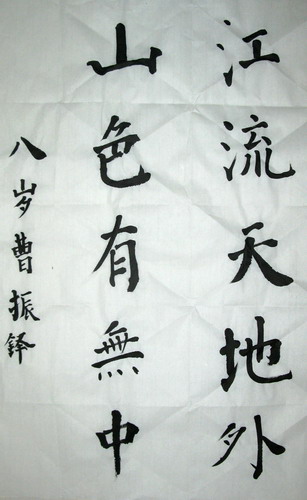 江流天地外
山色有無中
八岁曹振鋒